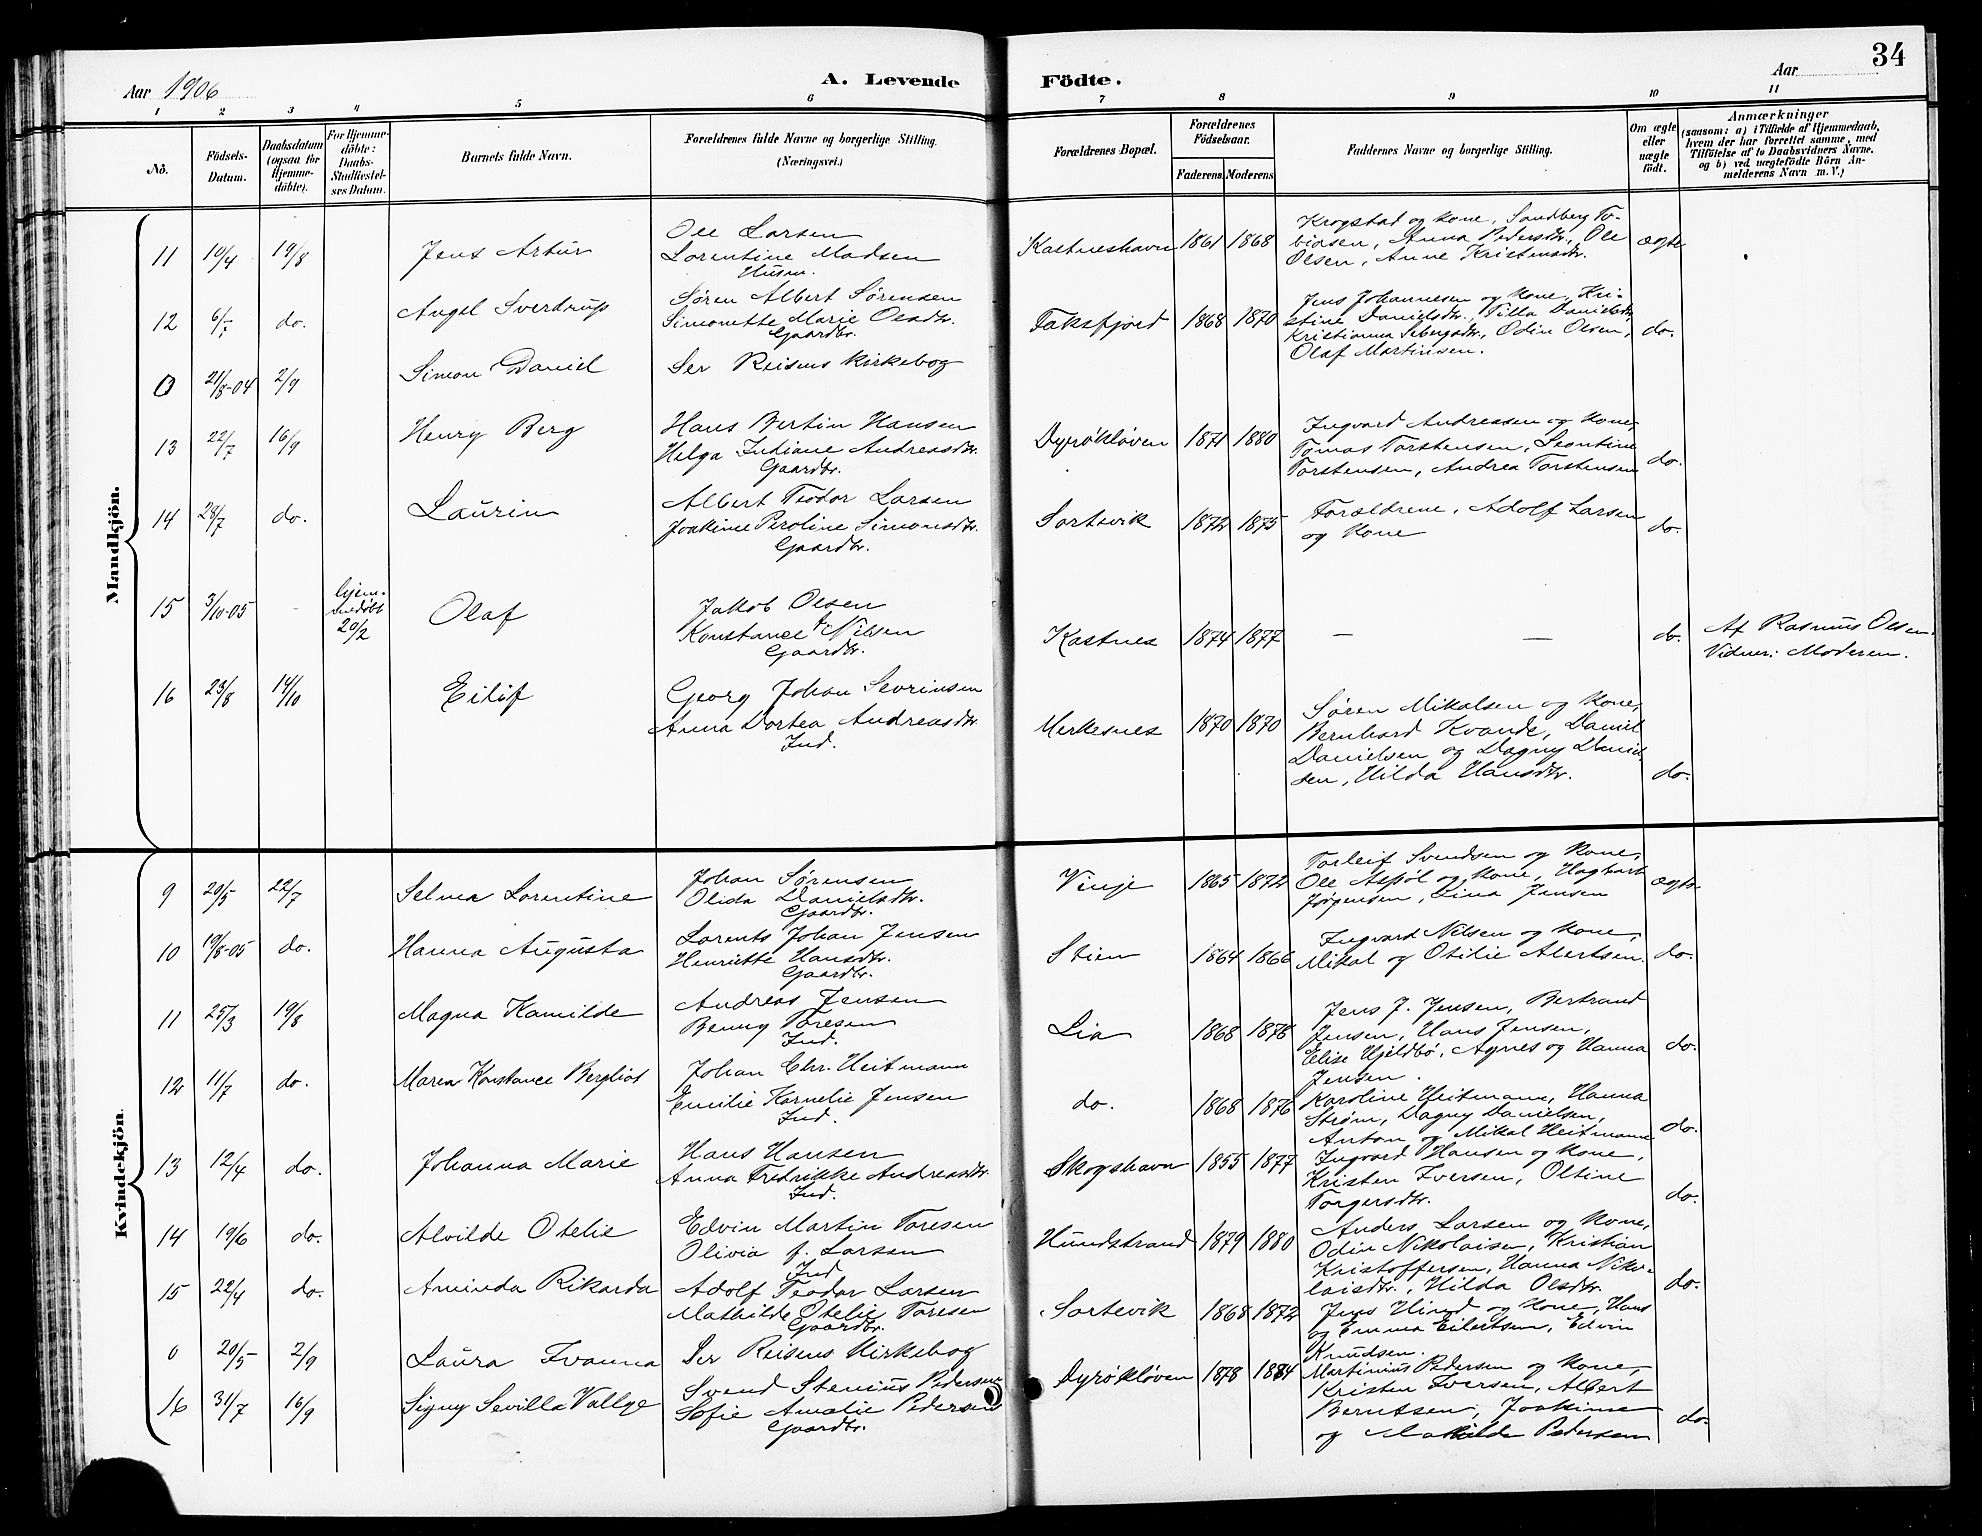 Aar 1906
A. Levende
Födte.
Aar
34
1 2 3 4 5 6 7 8 9 10 11
No.
Födsels-
Datum.
Daabsdatum
(ogsaa for
Hjemme-
döbte).
For Hjemme-
döbte:
Daabs-
Stadfæstel-
ses Datum.
Barnets fulde Navn.
Forældrenes fulde Navne og borgerlige Stilling.
(Næringsvei.)
Forældrenes Bopæl.
Forældrenes
Födselsaar.
Faderens. Moderens.
Faddernes Navne og borgerlige Stilling.
Om ægte
eller
uægte
födt.
Anmærkninger
(saasom: a) i Tilfælde af Hjemmedaab,
hvem der har forrettet samme, med
Tilföielse af to Daabsvidners Navne,
og b) ved uægtefödte Börn An-
melderens Navn m. V.)
Mandkjön.
11 10/4 19/8 Jens Artur
Ole Larsen
Lorentine Madsen
Husm.
Kastneshavn 1861 1868
Krogstad og Kone, Sandberg To-
biasen, Anna Pedersdtr., Ole
Olsen, Anne Kristensdtr.
ægte
12 do. Angel Sverdrup
Søren Albert Sørensen
Simonette Marie Olsdtr.
Gaardbr.
Faksfjord 1868 1870
Jens Johannesen og Kone, Kri-
stine Danielsdtr., Tilla Danielsdtr.
Kristianna Sebergsdtr., Odin Olsen,
Olaf Martinsen.
do.
0 21/8-04 2/9 Simon Daniel
Ser Reisens Kirkebog
13 22/7 16/9 Henry Berg
Hans Bertin Hansen
Helga Indiane Andreasdtr.
Gaardbr.
Dyrøkløven 1871 1880
Ingvard Andreassen og Kone,
Tomas Torstensen, Leontine
Torstensen, Andrea Torstensen
do.
14 28/7 do. Laurin
Albert Teodor Larsen
Joakime Peroline Simonsdtr.
Gaardbr.
Sortevik 1872 1875
Forældrene, Adolf Larsen
og Kone
do.
15 3/10-05 - hjem-
medøbt
20/2
Olaf
Jakob Olsen
Konstance f. Nilsen
Gaardbr.
Kastnes 1874 1877 — —
do.
Af Rasmus Olsen.
Vidner: Moderen.
16 23/8 14/10 Eilif
Georg Johan Sevrinsen
Anna Dortea Andreasdtr.
Ind.
Merkesnes 1870 1870
Søren Mikalsen og Kone,
Bernhard Kvande, Daniel
Danielsen og Dagny Daniel-
sen, Hilda Hansdtr.
do.
Kvindekjön.
9 20/5 22/7 Selma Lorentine
Johan Sørensen
Olida Danielsdtr.
Gaardbr.
Vinje 1865 1872
Torleif Svendsen og Kone,
Ole Aspøl og Kone, Hagbart
Jørgensen, Lina Jansen
ægte
10 19/8-05 do. Hanna Augusta
Lorents Johan Jensen
Henriette Hansdtr.
Gaardbr.
Stien 1864 1866
Ingvard Nilsen og Kone,
Mikal og Otilie Albertsen.
do.
11 25/3 19/8 Magna Kamilde
Andreas Jensen
Benny Toresen
Ind.
Lia 1868 1878
Jens J. Jensen, Bertrand
Jensen, Hans Jensen,
Elise Hjeldbø, Agnes og Hanna
Jensen.
do.
12 11/7 do. Maren Konstance Bergliot
Johan Chr. Heitmann
Emilie Kornelie Jensen
Ind.
do. 1868 1876
Karoline Heitmann, Hanna
Strøm, Dagny Danielsen,
Anton og Mikal Heitmann
do.
13 12/4 do. Johanna Marie
Hans Hansen
Anna Fredrikke Andreasdtr.
Ind.
Skogshavn 1855 1877
Ingvard Hansen og Kone,
Kristen Iversen, Oltine
Torgersdtr.
do.
14 19/6 do. Alvilde Otelie
Edvin Martin Toresen
Olivia f. Larsen
Ind
Hundstrand 1879 1880
Anders Larsen og Kone,
Odin Nikolaisen, Kristian
Kristoffersen, Hanna Niko-
laisdtr., Hilda Olsdtr.
do.
15 22/4 do. Aminda Rikarda
Adolf Teodor Larsen
Mathilde Otelie Toresen
Gaardbr.
Sortevik 1868 1872
Jens Hind og Kone, Hans
og Emma Eilertsen, Edvin
Knudsen.
0 20/5 2/9 Laura Ivanna
Ser Reisens Kirkebog
16 31/7 16/9 Signy Sevilla Vallye
Svend Stenius Pedersen
Sofie Amalie Pedersen
Gaardbr.
Dyrøkløven 1878 1884
Martinius Pedersen og Kone,
Kristen Iversen, Albert
Berntsen, Joakime
og Matilde Pedersen
do.